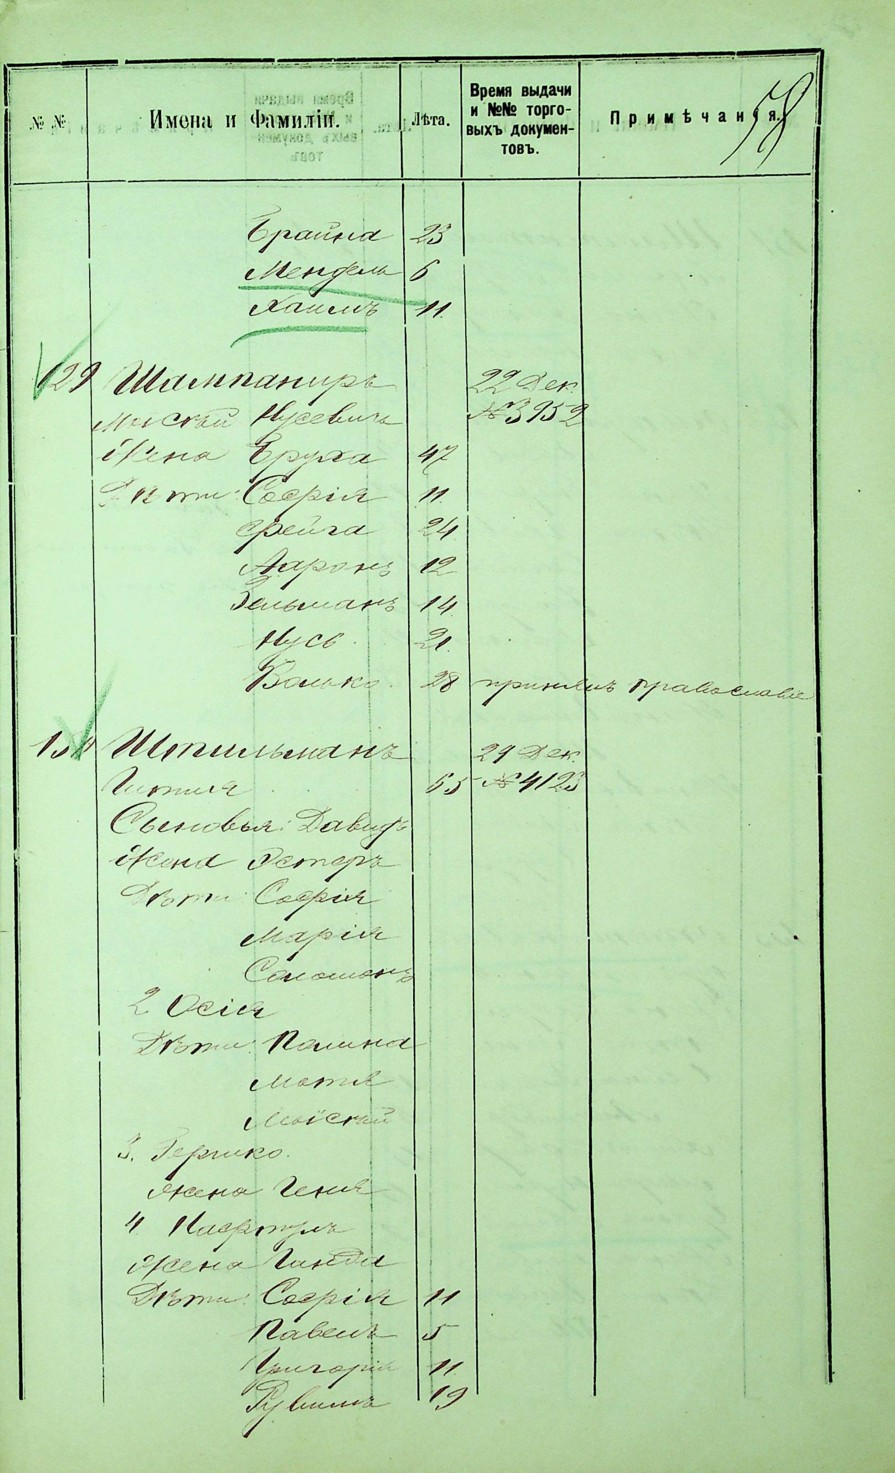 58
№ №
Имена и Фамиліи.
Лѣта.
Время выдачи
и №№ торго-
выхъ докумен-
товъ.
Примѣчанія.
Брайна 23
Мендель 6
Хаимъ 11
129 Шампаниръ 22 Дек.
Нусевичъ № 3952
Жена Еруха 47
Дѣти: Софія 11
Фейга 24
Ааронъ 12
Зельманъ 14
Нусь 21
Волько 28 принялъ православіе
130 Штильманъ 29 Дек.
65 № 4123
Сыновья: Давидъ
Жена Эстеръ
Дѣти: Софія
Марія
Соломонъ
2 Осія
Дѣти: Полина
Мотя
Моісѣй
3. Гершко.
Жена Геня
4 Нафтулъ
Жена
Дѣти: Софія 11
Павелъ 5
Григорій 11
Рувимъ 19